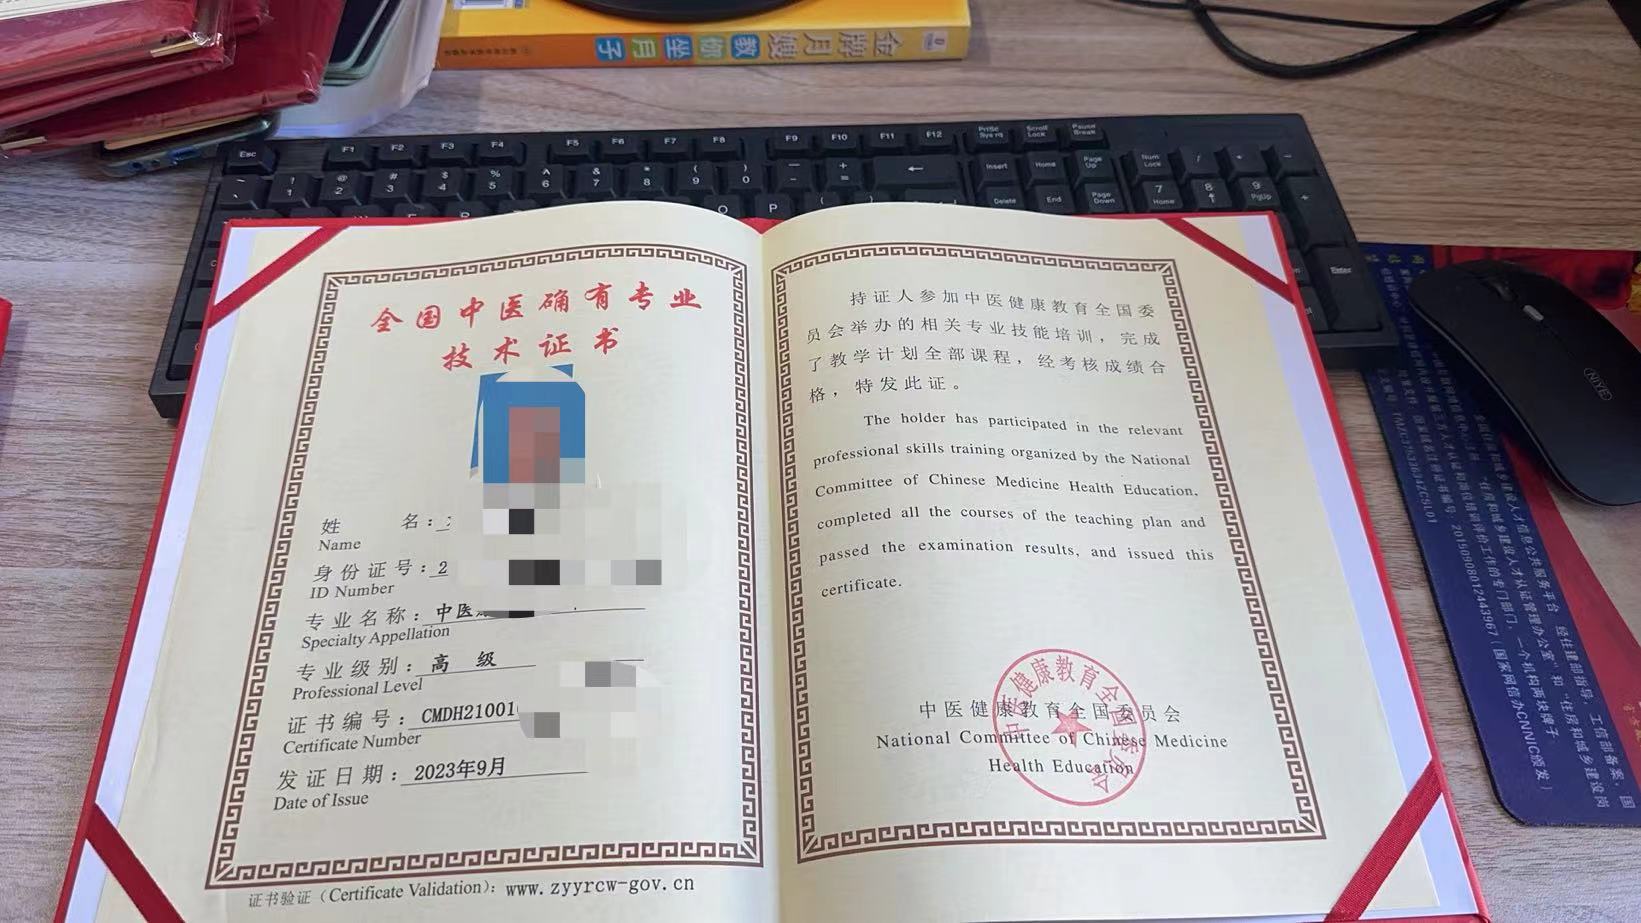 金牌月嫂教你坐月子
Esc
F1
F2
F3
F4
F5
F6
F7
F8
F9
F10
F11
F12
PrtSc
Sys rq
Scroll
Lock
Pause
Break
Insert
Home
Page
Up
Num
Lock
Delete
End
Page
Down
7
Home
8
9
PgUp
O
P
Enter
全国中医确有专业
技术证书
姓名：
Name
身份证号：2
ID Number
专业名称：中医
Specialty Appellation
专业级别：高 级
Professional Level
证书编号：CMDH21001
Certificate Number
发证日期：2023年9月
Date of Issue
证书验证（Certificate Validation）：www.zyyrcw-gov.cn
持证人参加中医健康教育全国委
员会举办的相关专业技能培训，完成
了教学计划全部课程，经考核成绩合
格，特发此证。
The holder has participated in the relevant
professional skills training organized by the National
Committee of Chinese Medicine Health Education,
completed all the courses of the teaching plan and
passed the examination results, and issued this
certificate.
中医健康教育全国委员会
National Committee of Chinese Medicine
Health Education
中医健康教育全国委员会